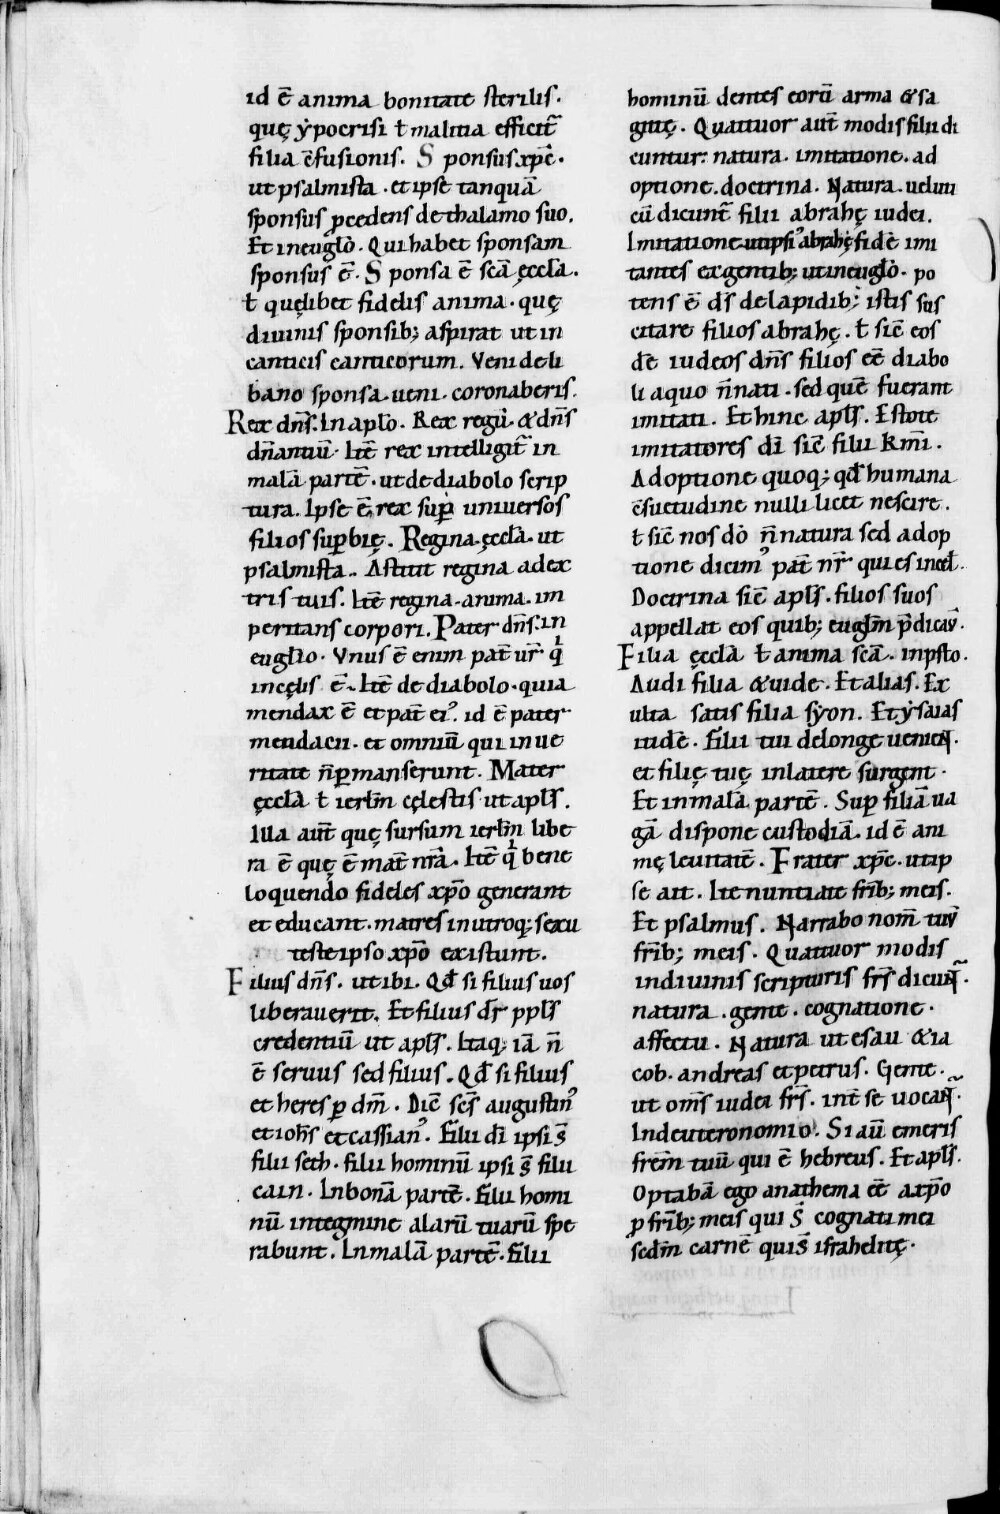 id ē anima bonitate sterilis.
quę ẏpocrisi ł malitia efficit᷑
filia ꝯ̄fusionis. Sponsus xp̄c.
ut psalmista. et ipse tanquā
sponsus p̄cedens de thalamo suo.
Et in euglō. Qui habet sponsam
sponsus ē. Sponsa ē scā ęcclā.
ł quęlibet fidelis anima. quę
diuinis sponsib; aspirat ut in
canticis canticorum. Veni de li
bano sponsa. ueni. coronaberis.
Rex dn̄s. In aplō. Rex regū. & dn̄s
dn̄antiū. Itē rex intelligit᷑ in
malā partē. ut de diabolo scrip
tura. Ipse ē rex sup̄ universos
filios suꝑbię. Regina. ęcclā. ut
psalmista.. Astitit regina a dex
tris tuis. Itē regina. anima. im
peritans corpori. Pater dn̄s. in
euglio. Vnus ē enim pat̄ ur̄ qͥ
in cęlis ē. Itē de diabolo. quia
mendax ē et pat̄ ei᾽. id ē pater
mendacii. et omniū qui in ue
ritate n̄ ꝑmanserunt. Mater
ęcclā ł ierlm̄ cęlestis ut apls̄.
Illa aut̄ quę sursum ierlm̄ libe
ra ē quę ē mat̄ nr̄a. Itē qͥ bene
loquendo fideles xp̄o generant
et educant. matres in utroq; sexu
teste ipso xp̄o existunt.
Filius dn̄s. ut ibi. Qđ si filius uos
liberauerit. Et filius dr̄ ppls̄
credentiū ut apls̄. Itaq; iā n̄
ē seruus sed filius. Qđ si filius
et heres ꝑ dm̄. Dic̄ scs̄ augustin᾽
et ioh̄s et cassian᾽. Filii dī ipsi s̄
filii seth. filii hominū ipsi s̄ filii
cain. In bonā partē. Filii homi
nū in tegmine alarū tuarū spe
rabunt. In malā partē. Filii
hominū dentes eorū arma & sa
gittę. Quattuor aut̄ modis filii di
cuntur: natura. imitatione. ad
optione. doctrina. Natura. uelut
cū dicunt᷑ filii abrahę iudei.
Imitatione ut ipsi᾽ abrahę fidē imi
tantes ex gentib; ut in euglō. po
tens ē ds̄ de lapidib; istis sus
citare filios abrahę. ł sic̄ eos
dē iudeos dn̄s filios eē diabo
li a quo n̄ nati. sed quē fuerant
imitati. Et hinc apls̄. Estote
imitatores dī sic̄ filii kmī.
Adoptione quoq; qđ humana
ꝯ̄suetudine nulli licet nescire.
ł sic̄ nos dō n̄ natura sed adop
tione dicim᾽ pat̄ nr̄ qui es in cel̄.
Doctrina sic̄ apls̄. filios suos
appellat eos quib; euglm̄ p̄dicaū.
Filia ęcclā ł anima scā. in psło.
Audi filia & uide. Et alias. Ex
ulta satis filia sẏon. Et ẏsaias
itidē. Filii tui de longe uenient.
et filię tuę in latere surgent.
Et in malā partē. Sup̄ filiā ua
gā dispone custodiā. id ē ani
mę leuitatē. Frater xp̄c. ut ip
se ait. Ite nuntiate frīb; meis.
Et psalmus. Narrabo nom̄ tuū
frīb; meis. Quattuor modis
in diuinis scripturis frs̄ dicunt᷑.
natura. gente. cognatione.
affectu. Natura ut esau & ia
cob. andreas et petrus. Gente.
ut oms̄ iudei frs̄. int̄ se uocant᷑.
In deuteronomio. Si aū emeris
frem̄ tuū qui ē hebreus. Et apls̄.
Optabā ego anathema eē a xp̄o
p̄ frīb; meis qui s̄ cognati mei
sedm̄ carnē qui s̄ israhelitę.